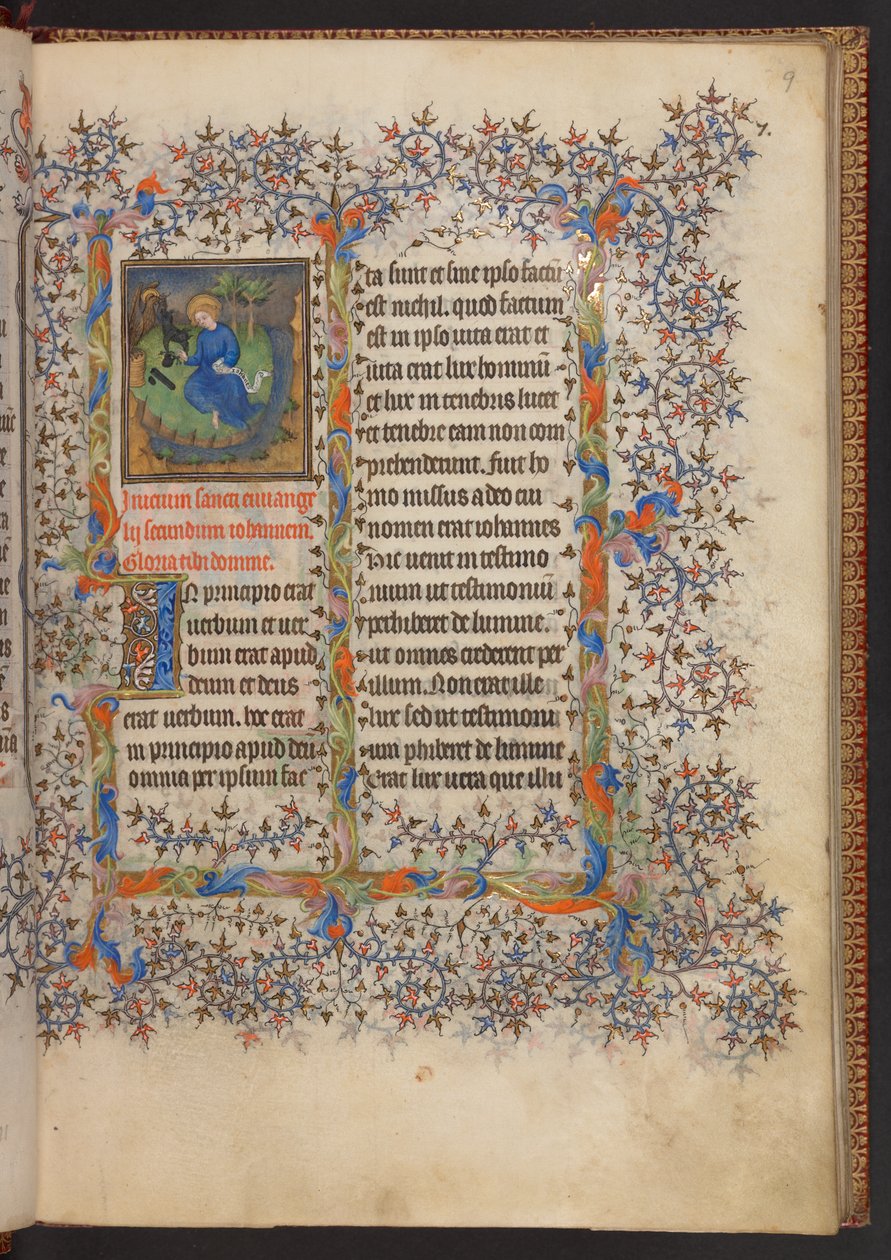 9
7.
Inicium sancti euuange
lij secundum iohannem.
Gloria tibi domine.
In principio erat
uerbum et uer
bum erat apud
deum et deus
erat uerbum. hoc erat
in principio apud deū
omnia per ipsum fac
ta sunt et sine ipso factū
est nichil. quod factum
est in ipso uita erat et
uita erat lux hominū
et lux in tenebris lucet
et tenebre eam non com
prehenderunt. fuit ho
mo missus a deo cui
nomen erat iohannes
Hic uenit in testimo
nium ut testimoniū
perhiberet de lumine.
ut omnes crederent per
illum. Non erat ille
lux sed ut testimoni
um phiberet de lumine
Erat lux uera que illu